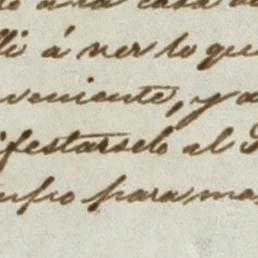 a la casa de
lli á ver lo que
veniente, y a
ifestarselo al
para ma